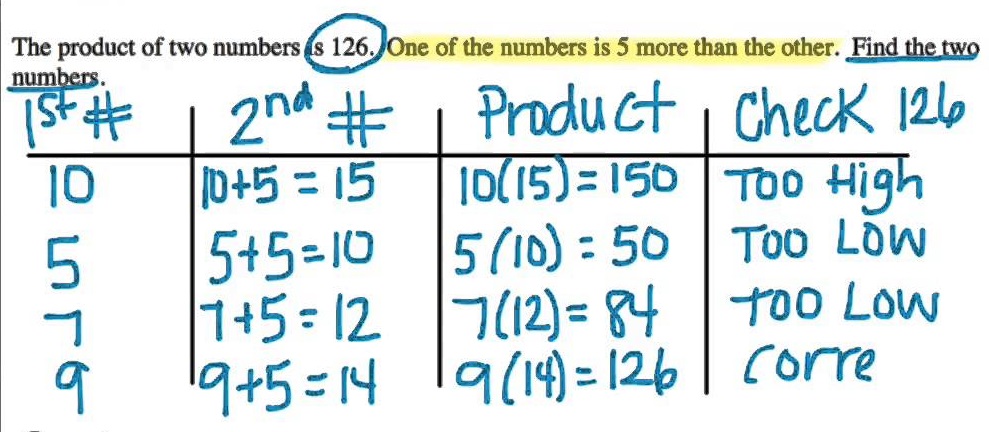 The product of two numbers is 126. One of the numbers is 5 more than the other. Find the two
numbers.
1st # 2nd # Product Check 126
10 10+5 = 15 10(15)=150 Too High
5 5+5=10 5(10) = 50 Too Low
7 7+5=12 7(12)= 84 Too Low
9 9+5=14 9(14)=126 Corre